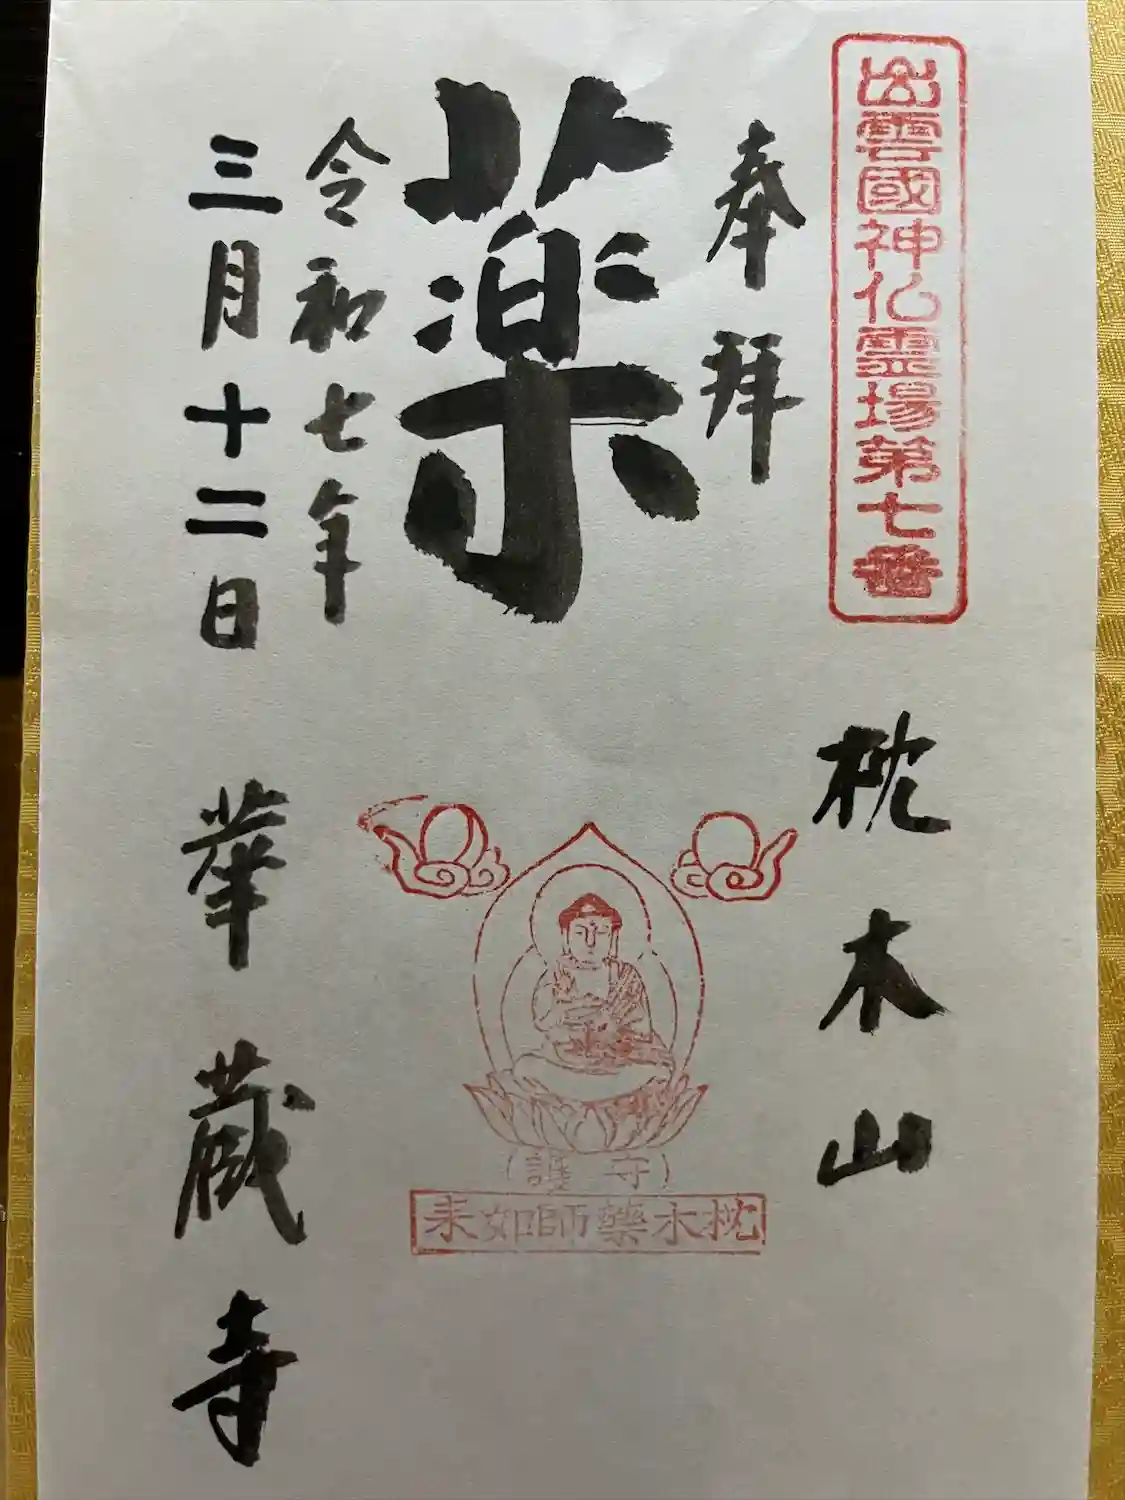 出雲國神仏霊場第七番
奉拝
枕木山
薬
(護守)
枕木藥師如来
令和七年
三月十二日
華蔵寺